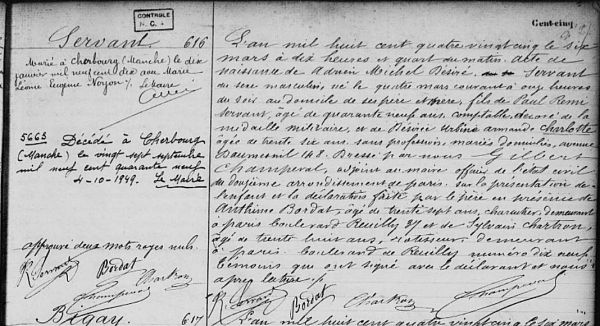 CONTRÔLE
N. C.
Cent-cinq
Servant 616
Marié à Cherbourg (Manche) le dix
janvier mil neuf cent dix avec Marie
Léonie Eugénie Noyon /. Le Maire
5663 Décédé à Cherbourg
(Manche) le vingt sept septembre
mil neuf cent quarante neuf
4-10-1949. Le Maire
approuvé deux mots rayés nuls.
Bordat
Chartron
Champeval
Bigay 617
L'an mil huit cent quatre vingt cinq le six
mars à dix heures et quart du matin. Acte de
naissance de Adrien Michel Désiré Servant
du sexe masculin, né le quatre mars courant à onze heures
du soir au domicile de ses père et mère, fils de Paul Remi
Servant, âgé de quarante neuf ans, comptable, décoré de la
médaille militaire, et de Désirée Urbine Armande Charlotte
âgée de trente six ans, sans profession, mariés, domiciliés, avenue
Daumesnil 148. Dressé par nous Gilbert
Champeval, adjoint au maire officier de l'état civil
du douzième arrondissement de paris. sur la présentation de
l'enfant et la déclaration faite par le père en présence de
Anthime Bordat, âgé de trente sept ans, charcutier, demeurant
à paris boulevard Reuilly 37 et de Sylvain Chartron,
âgé de trente huit ans, rôtisseur, demeurant
à paris. boulevard de Reuilly numéro dix neuf.
témoins qui ont signé avec le déclarant et nous
après lecture /.
Bordat
Chartron
Champeval
L'an mil huit cent quatre vingt cinq le six mars